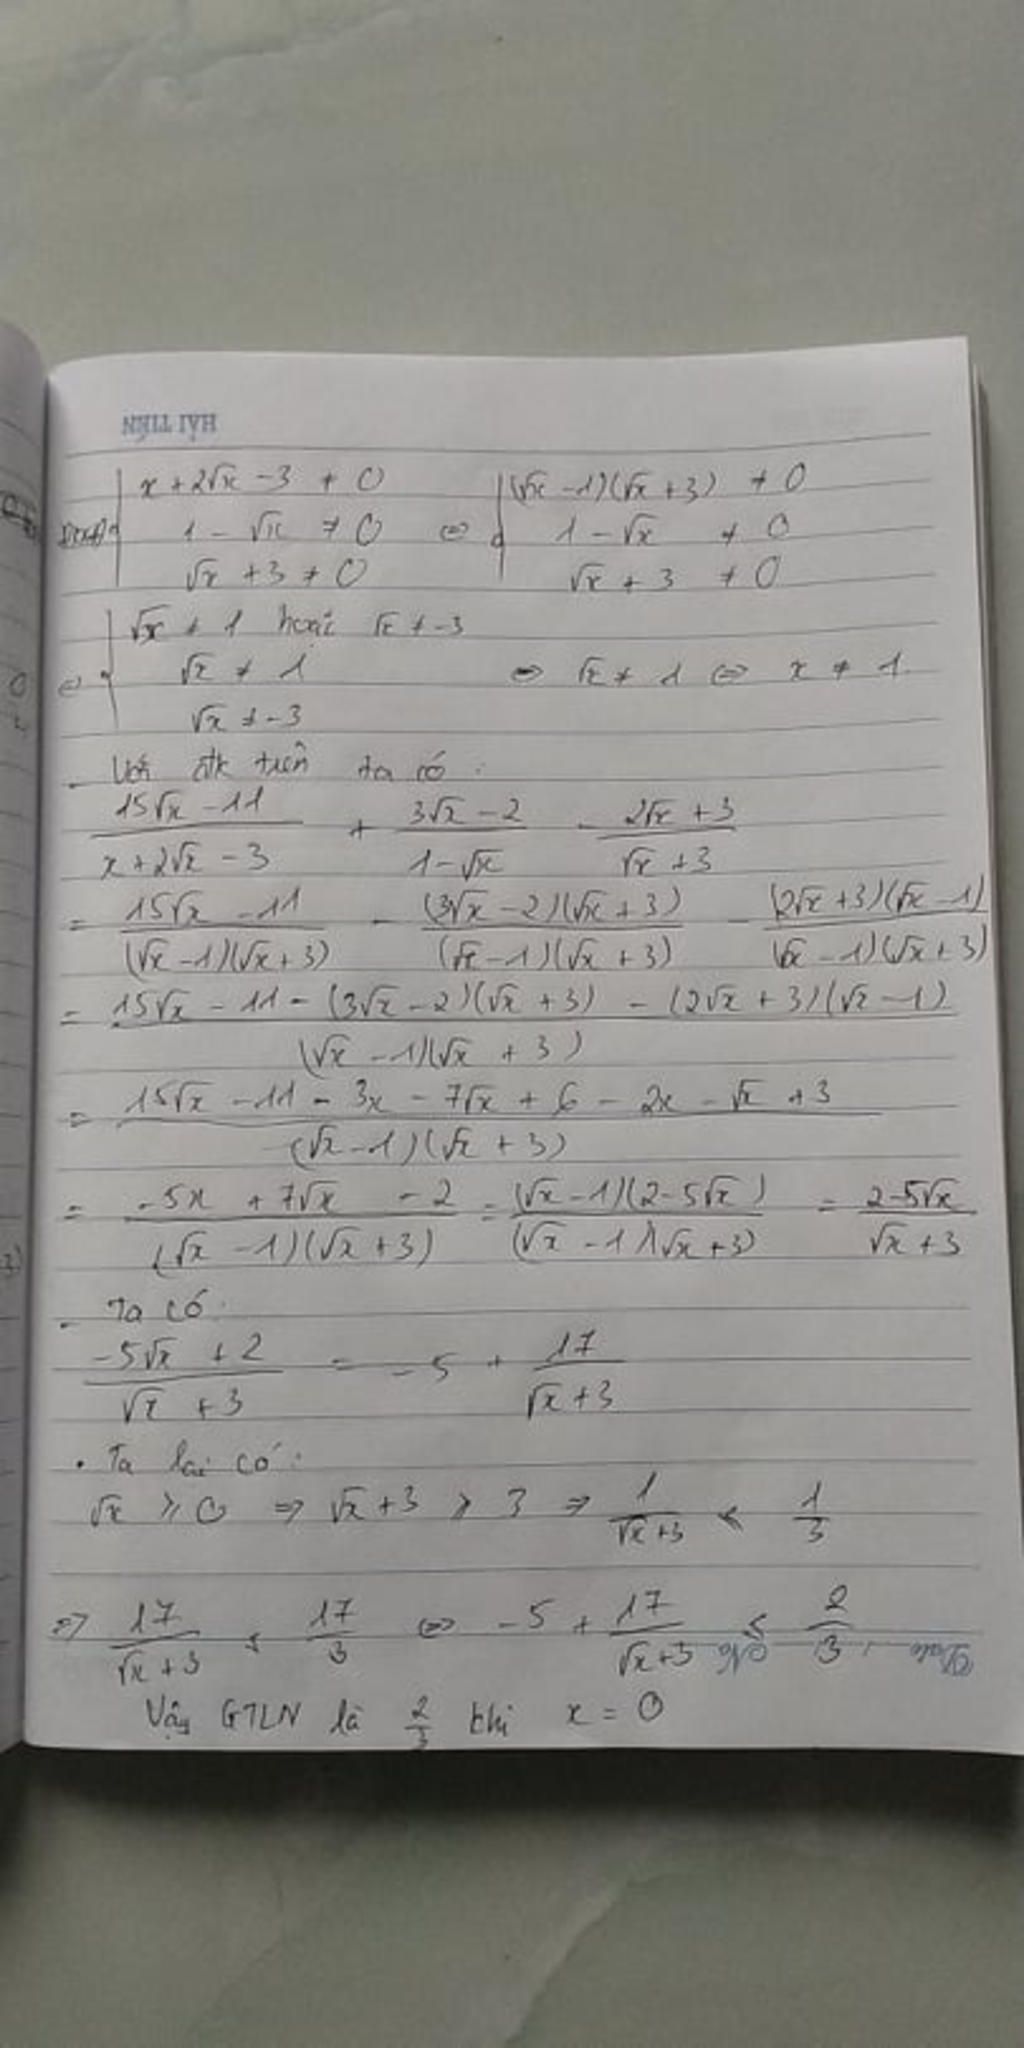 HẢI TIẾN
x + 2√x - 3 ≠ 0 (√x - 1)(√x + 3) ≠ 0
1 - √x ≠ 0 ⇔ 1 - √x ≠ 0
√x + 3 ≠ 0 √x + 3 ≠ 0
√x ≠ 1 hoặc √x ≠ -3
⇔ √x ≠ 1 ⇔ √x ≠ 1 ⇔ x ≠ 1
√x ≠ -3
- Với đk trên ta có:
(15√x - 11)/(x + 2√x - 3) + (3√x - 2)/(1 - √x) - (2√x + 3)/(√x + 3)
= (15√x - 11)/((√x - 1)(√x + 3)) - ((3√x - 2)(√x + 3))/((√x - 1)(√x + 3)) - ((2√x + 3)(√x - 1))/((√x - 1)(√x + 3))
= (15√x - 11 - (3√x - 2)(√x + 3) - (2√x + 3)(√x - 1))/((√x - 1)(√x + 3))
= (15√x - 11 - 3x - 7√x + 6 - 2x - √x + 3)/((√x - 1)(√x + 3))
= (-5x + 7√x - 2)/((√x - 1)(√x + 3)) = ((√x - 1)(2 - 5√x))/((√x - 1)(√x + 3)) = (2 - 5√x)/(√x + 3)
- Ta có:
(-5√x + 2)/(√x + 3) = -5 + 17/(√x + 3)
. Ta lại có:
√x ⩾ 0 ⇒ √x + 3 ⩾ 3 ⇒ 1/(√x + 3) ≤ 1/3
⇒ 17/(√x + 3) ≤ 17/3 ⇔ -5 + 17/(√x + 3) ≤ 2/3
No Date
Vậy GTLN là 2/3 khi x = 0